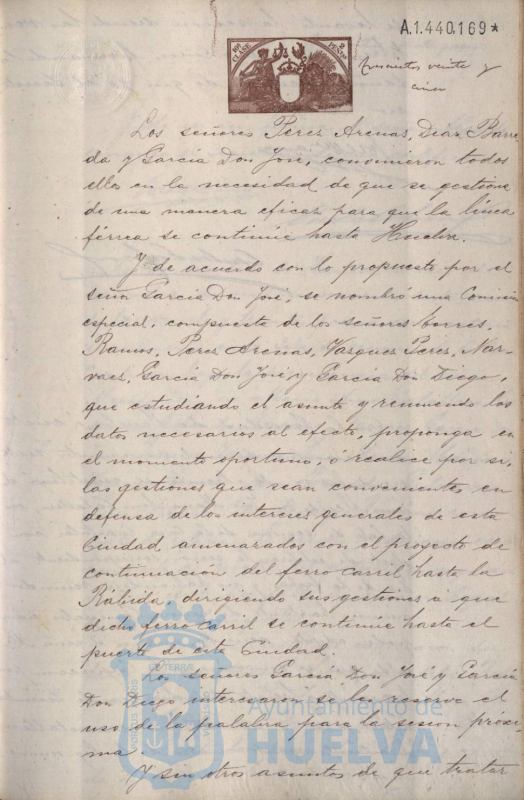 A.1.440.169*
10ª CLASE
2 PESETAS
veinte y
cinco
Los señores Perez Arenas, Diaz Barre
da y Garcia Don José, convinieron todos
ellos en la necesidad de que se gestione
de una manera eficaz para que la línea
férrea se continúe hasta Huelva.
Y de acuerdo con lo propuesto por el
señor Garcia Don José, se nombró una Comisión
especial, compuesta de los señores Torres,
Ramos, Perez Arenas, Vazquez Perez, Nar-
vaez, Garcia Don José y Garcia Don Diego,
que estudiando el asunto y reuniendo los
datos necesarios al efecto, proponga en
el momento oportuno, ó realice por si,
las gestiones que sean convenientes en
defensa de los intereses generales de esta
Ciudad amenazados con el proyecto de
continuación del ferro carril hasta la
Rábida, dirigiendo sus gestiones á que
dicho ferro carril se continúe hasta el
puerto de esta Ciudad.
Los señores Garcia Don José y Garcia
Don Diego interesaron se les reserve el
uso de la palabra para la sesion próxi-
ma
Y sin otros asuntos de que tratar
Ayuntamiento de
HUELVA